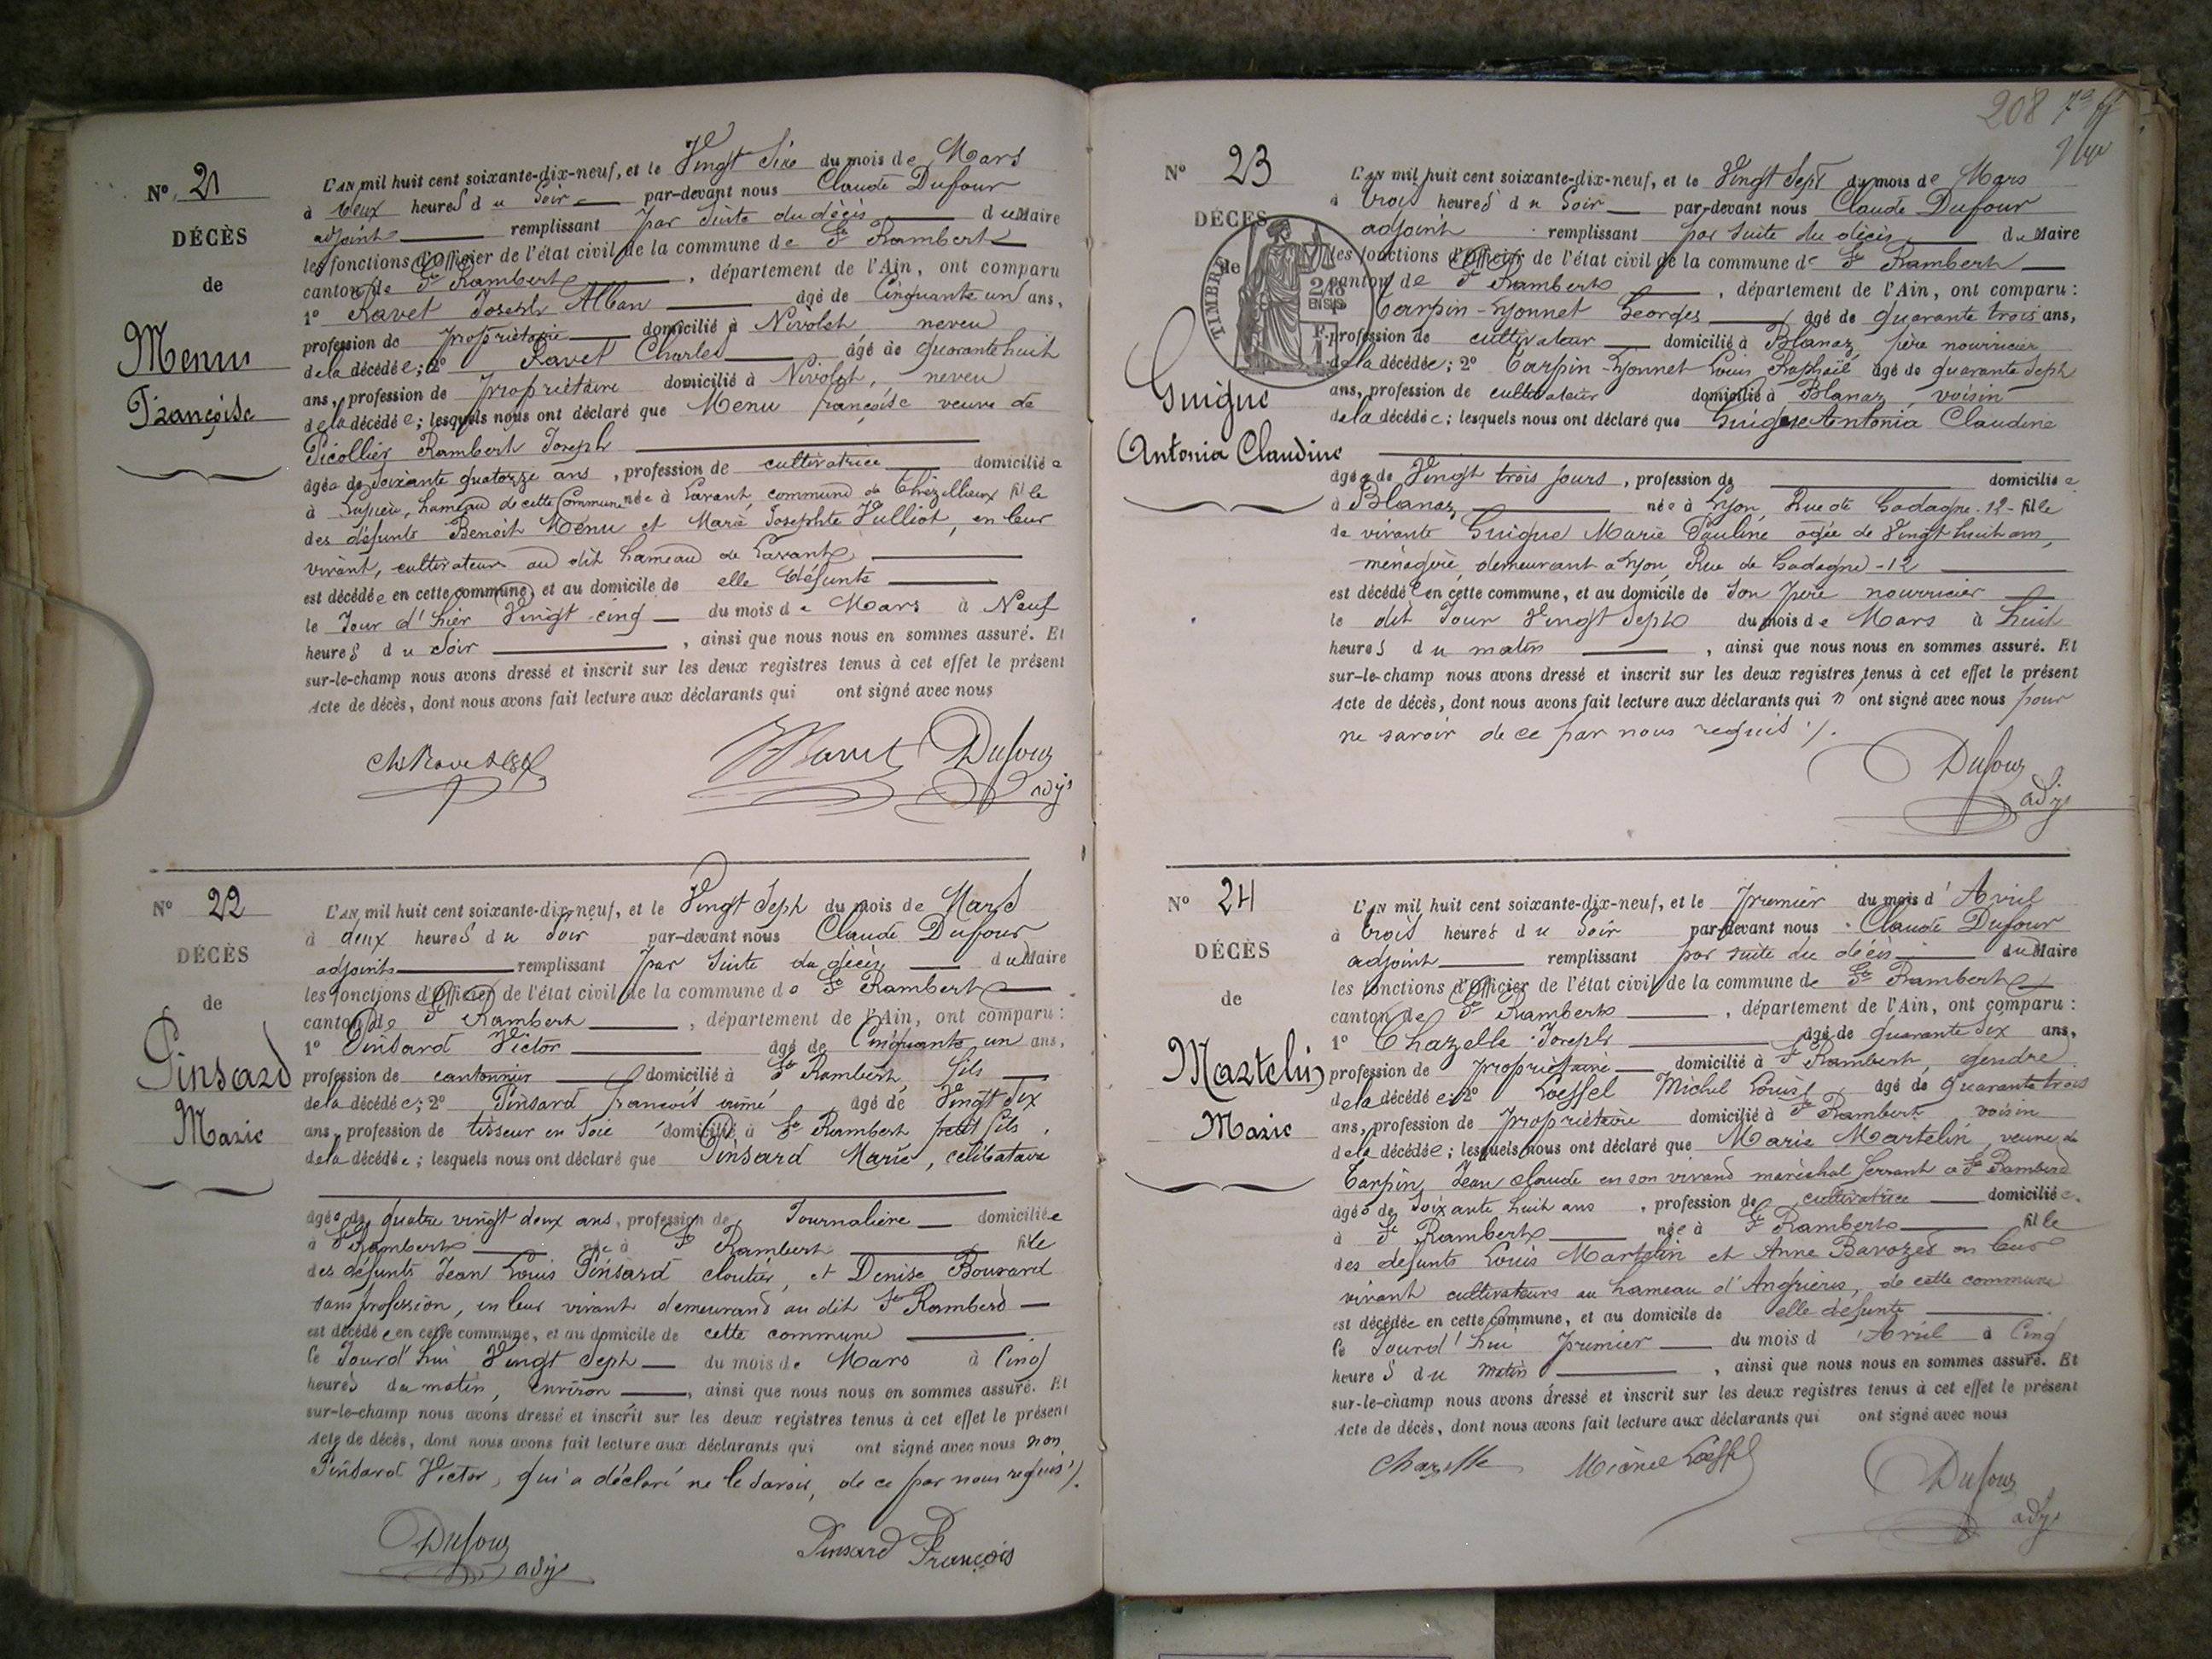 Nº 21
DÉCÈS
de
Menu
Françoise
L'AN mil huit cent soixante-dix-neuf, et le Vingt Six du mois de Mars
à deux heures du Soir par-devant nous Claude Dufour
adjoint remplissant par Suite du décès du Maire
les fonctions d'Officier de l'état civil de la commune de St Rambert
canton de St Rambert, département de l'Ain, ont comparu
1º Ravet Joseph Alban âgé de Cinquante un ans,
profession de propriétaire domicilié à Nivolet, neveu
de la décédée; 2º Ravet Charles âgé de quarante huit
ans, profession de propriétaire domicilié à Nivolet, neveu
de la décédée; lesquels nous ont déclaré que Menu françoise veuve de
Picollier Rambert Joseph
âgée de Soixante quatorze ans, profession de cultivatrice domiciliée
à Lupieu, hameau de cette Commune née à Lavant, commune de Chezillieux fille
des défunts Benoit Menu et Marie Josephte Vulliot, en leur
vivant, cultivateurs au dit hameau de Lavant
est décédée en cette commune, et au domicile de elle défunte
le Jour d'hier Vingt cinq du mois de Mars à Neuf
heures du Soir, ainsi que nous nous en sommes assuré. Et
sur-le-champ nous avons dressé et inscrit sur les deux registres tenus à cet effet le présent
Acte de décès, dont nous avons fait lecture aux déclarants qui ont signé avec nous
Ch Ravet Ravet Dufour
adj
Nº 22
DÉCÈS
de
Pinsard
Marie
L'AN mil huit cent soixante-dix-neuf, et le Vingt Sept du mois de Mars
à deux heures du Soir par-devant nous Claude Dufour
adjoint remplissant par Suite du décès du Maire
les fonctions d'Officier de l'état civil de la commune de St Rambert
canton de St Rambert, département de l'Ain, ont comparu:
1º Pinsard Victor âgé de Cinquante un ans,
profession de cantonnier domicilié à St Rambert, fils
de la décédée; 2º Pinsard françois aimé âgé de Vingt Six
ans, profession de tisseur en Soie domicilié à St Rambert petit fils,
de la décédée; lesquels nous ont déclaré que Pinsard Marie, célibataire
âgée de quatre vingt deux ans, profession de Journalière domiciliée
à St Rambert née à St Rambert fille
des défunts Jean Louis Pinsard cloutier, et Denise Bouvard
sans profession, en leur vivant demeurand au dit St Rambert
est décédée en cette commune, et au domicile de cette commune
le Jourd'hui Vingt Sept du mois de Mars à Cinq
heures du matin, environ, ainsi que nous nous en sommes assuré. Et
sur-le-champ nous avons dressé et inscrit sur les deux registres tenus à cet effet le présent
Acte de décès, dont nous avons fait lecture aux déclarants qui ont signé avec nous non
Pinsard Victor, qui a déclaré ne le savoir, de ce par nous requis /.
Dufour Pinsard François
adj
208
Nº 23
DÉCÈS
de
TIMBRE
2/10
EN SUS
Guigue
Antonia Claudine
L'AN mil huit cent soixante-dix-neuf, et le Vingt Sept du mois de Mars
à trois heures du Soir par-devant nous Claude Dufour
adjoint remplissant par suite du décès du Maire
les fonctions d'Officier de l'état civil de la commune de St Rambert
canton de St Rambert, département de l'Ain, ont comparu:
Carpin-Lyonnet Georges âgé de quarante trois ans,
profession de cultivateur domicilié à Blanaz, père nourricier
de la décédée; 2º Carpin-Lyonnet Louis Raphaël âgé de quarante Sept
ans, profession de cultivateur domicilié à Blanaz, voisin
de la décédée; lesquels nous ont déclaré que Guigue Antonia Claudine
âgée de Vingt trois jours, profession de domiciliée
à Blanaz, née à Lyon, Rue de Gadagne-12- fille
de vivante Guigue Marie Pauline agée de Vingt huit ans,
ménagère, demeurant à Lyon, Rue de Gadagne-12
est décédée en cette commune, et au domicile de Son père nourricier
le dit Jour Vingt Sept du mois de Mars à huit
heures du matin, ainsi que nous nous en sommes assuré. Et
sur-le-champ nous avons dressé et inscrit sur les deux registres tenus à cet effet le présent
Acte de décès, dont nous avons fait lecture aux déclarants qui n'ont signé avec nous pour
ne savoir de ce par nous requis /.
Dufour
adj
Nº 24
DÉCÈS
de
Martelin
Marie
L'AN mil huit cent soixante-dix-neuf, et le premier du mois d'Avril
à trois heures du Soir par-devant nous Claude Dufour
adjoint remplissant par suite du décès du Maire
les fonctions d'Officier de l'état civil de la commune de St Rambert
canton de St Rambert, département de l'Ain, ont comparu:
1º Chazelle Joseph âgé de quarante Six ans,
profession de propriétaire domicilié à St Rambert, gendre
de la décédée; 2º Loeffel Michel Louis âgé de quarante trois
ans, profession de propriétaire domicilié à St Rambert, voisin
de la décédée; lesquels nous ont déclaré que Marie Martelin, veuve de
Carpin, Jean Claude en son vivand maréchal ferrant à St Rambert
âgée de Soixante huit ans, profession de cultivatrice domiciliée
à St Rambert née à St Rambert fille
des défunts Louis Martelin et Anne Bavozet en leur
vivant cultivateurs au hameau d'Angrières, de cette commune
est décédée en cette commune, et au domicile de elle défunte
le Jourd'hui premier du mois d'Avril à Cinq
heures du matin, ainsi que nous nous en sommes assuré. Et
sur-le-champ nous avons dressé et inscrit sur les deux registres tenus à cet effet le présent
Acte de décès, dont nous avons fait lecture aux déclarants qui ont signé avec nous
Chazelle Michel Loeffel Dufour
adj